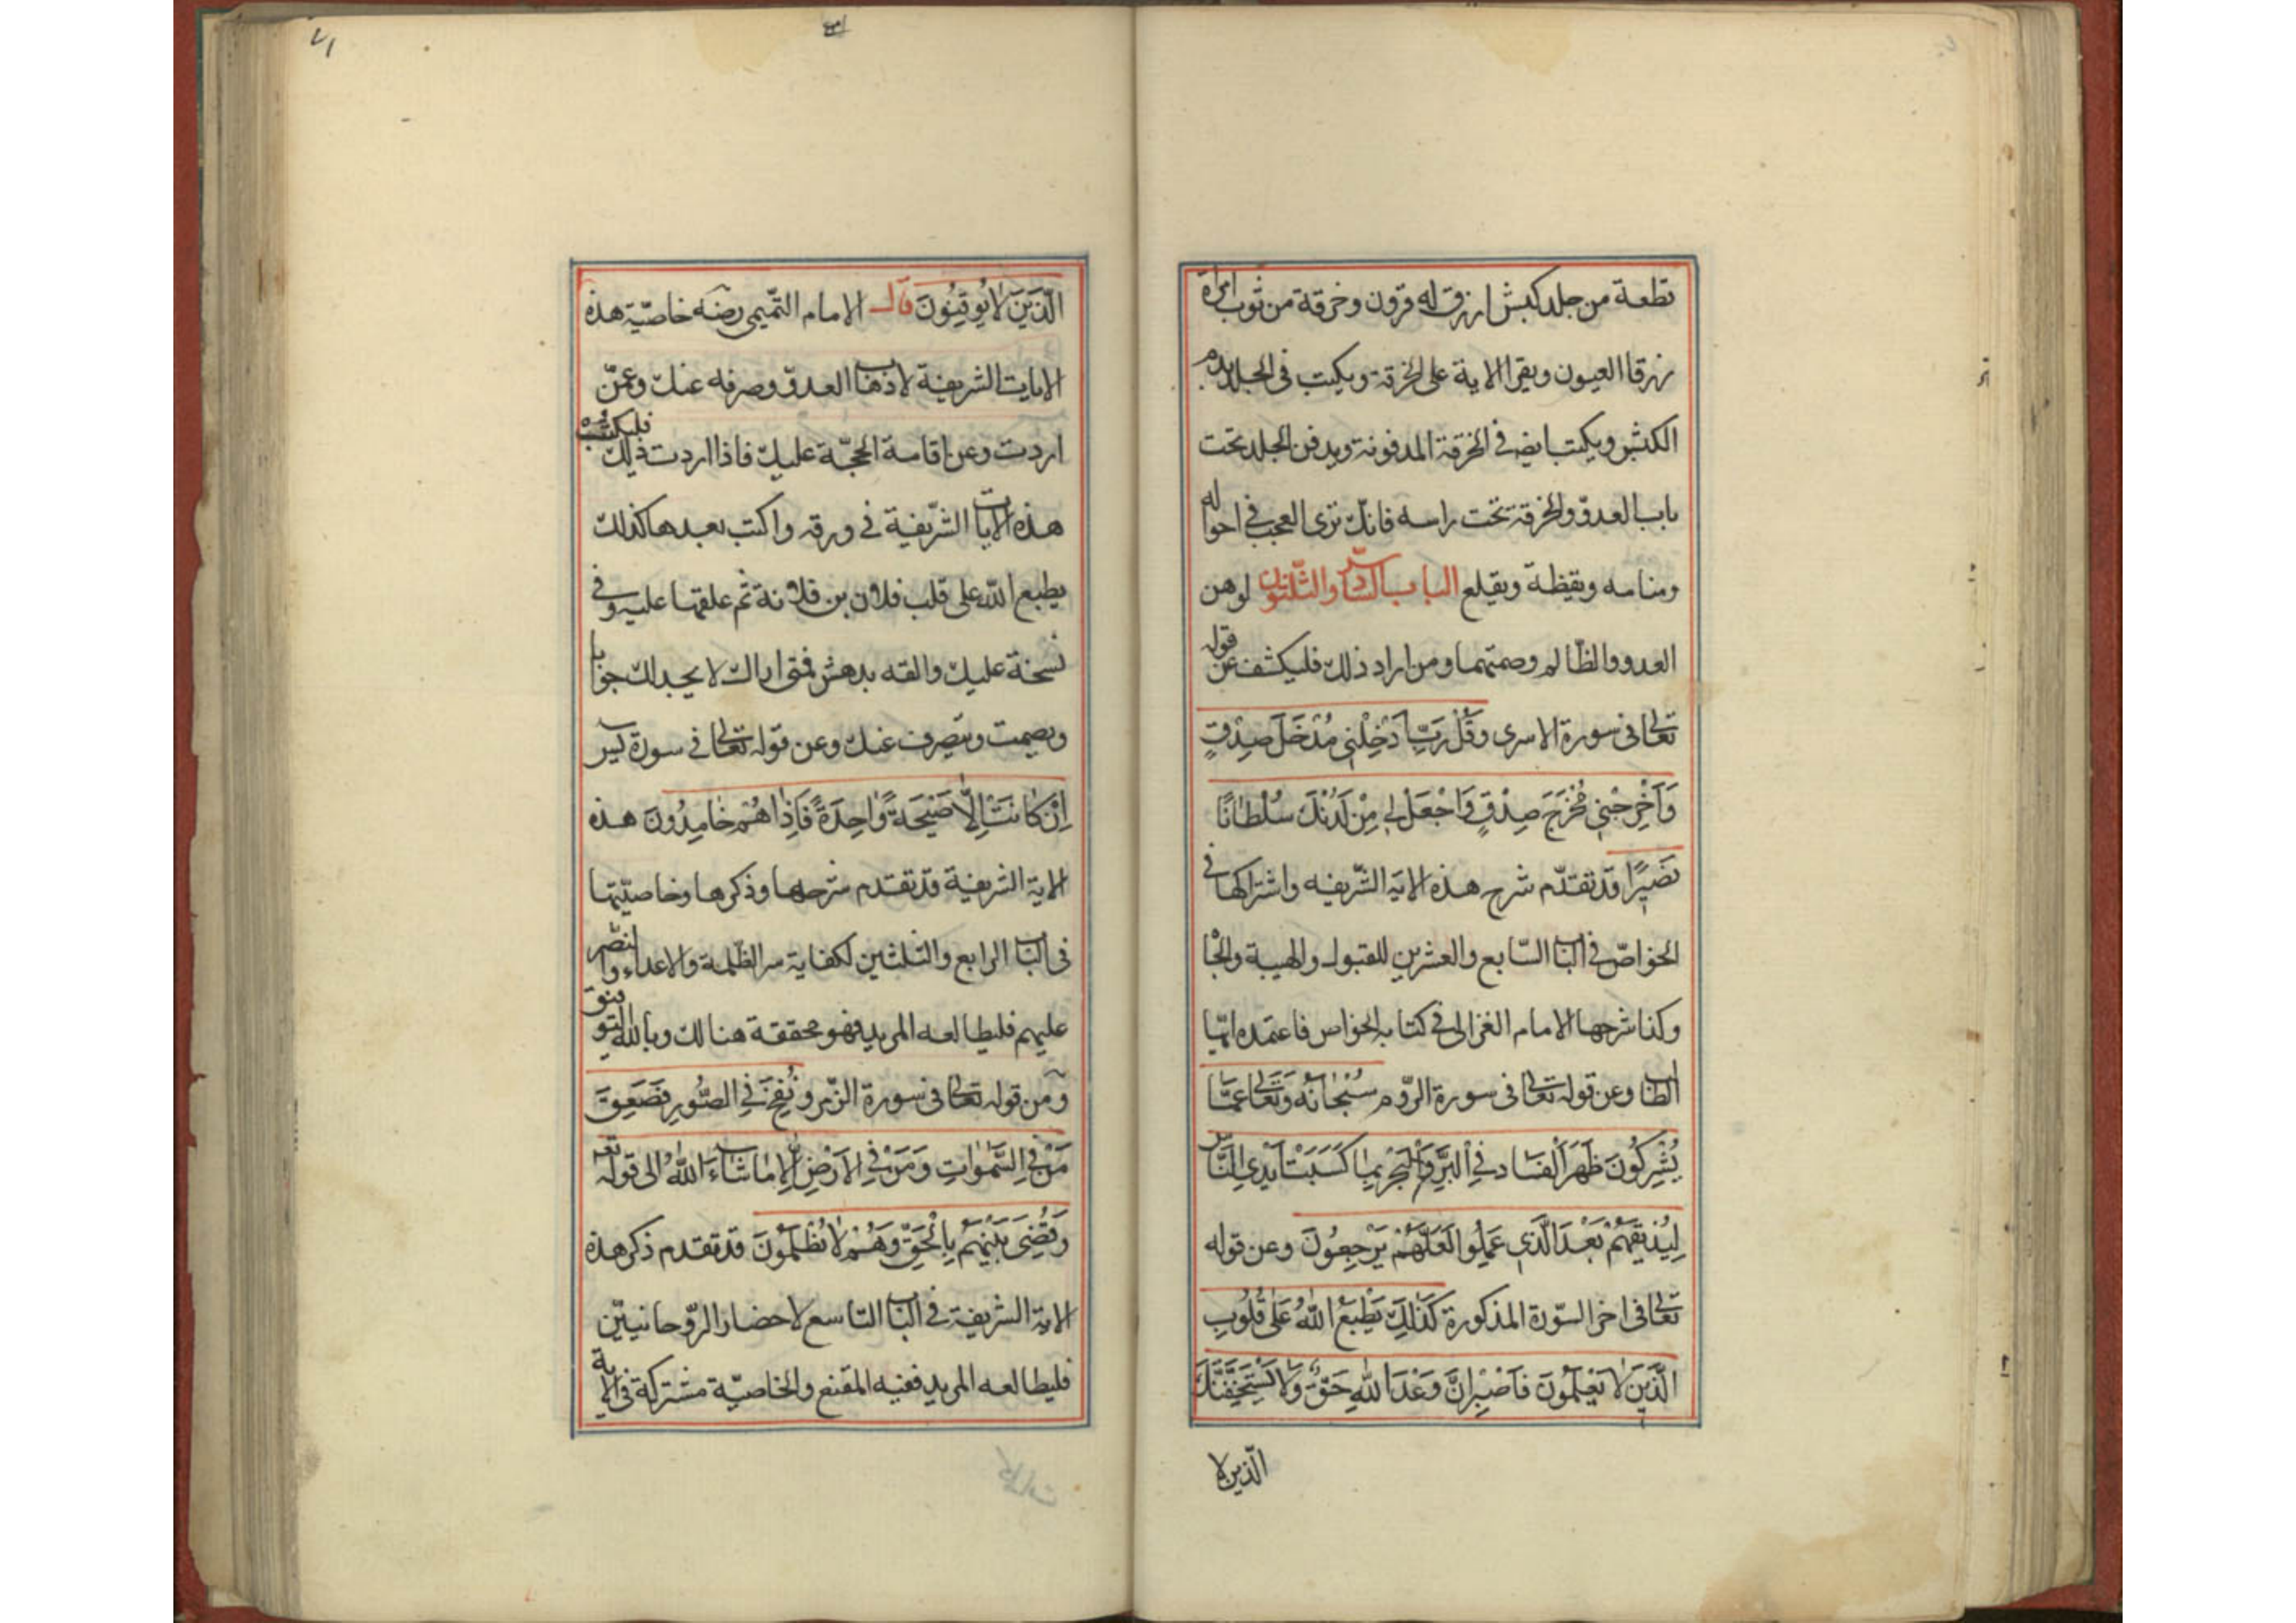 قطعة من جلد كبش ازرق له قرون وخرقة من ثوب امراة
زرقا العيون ويقرا الاية على الخرقة ويكتب فى الجلد بدم
الكبش ويكتب ايض فى الخرقة المدفونة ويدفن الجلد تحت
باب العدوّ والخرقة تحت راسه فانك ترى العجب فى احواله
ومنامه ويقظة ويقلع الباب السّادس والثّلثون لوهن
العدو والظّالم وصمتهما ومن اراد ذلك فليكشف عن قوله
تعالى فى سورة الاسرى وَقُلْ رَبِّ اَدْخِلْنِى مُدْخَلَ صِدْقٍ
وَاَخْرِجْنِى مُخْرَجَ صِدْقٍ وَاجْعَلْ لِى مِنْ لَدُنْكَ سُلْطَانًا
نَصِيرًا قد تقدّم شرح هذه الاية الشّريفه واشتراكها فى
الخواصّ فى الباب السّابع والعشرين للقبول والهيبة والجا
وكذا شرحها الامام الغزالى فى كتابه الخواص فاعتمده ايّها
الطالب وعن قوله تعالى فى سورة الرّوم سُبْحَانَهُ وَتَعَالَى عَمَّا
يُشْرِكُونَ ظَهَرَ الْفَسَادُ فِى الْبَرِّ وَالْبَحْرِ بِمَا كَسَبَتْ اَيْدِى النَّاس
لِيُذِيقَهُمْ بَعْدَ الَّذِى عَمِلُوا لَعَلَّهُمْ يَرْجِعُونَ وعن قوله
تعالى فى اخر السّورة المذكورة كَذَلِكَ يَطْبَعُ اللّٰهُ عَلَى قُلُوبِ
الَّذِينَ لَا يَعْلَمُونَ فَاصْبِرْ اِنَّ وَعْدَ اللّٰهِ حَقٌّ وَلَا يَسْتَخِفَّنَّكَ
الّذين لا
٧١
الَّذِينَ لَا يُوقِنُونَ قال الامام التّميمى رضه خاصّية هذه
الايات الشريفة لاذهاب العدوّ وصرفه عنك وعمّن
اردت وعن اقامة الحجّة عليك فاذا اردت ذلك فليكتب
هذه الايات الشّريفة فى ورقه واكتب بعدها كذلك
يطبع اللّٰه على قلب فلان بن فلانة ثم علقها عليه وفى
نسخة عليك والقه بدهش فمتى اراك لا يجد لك جوابا
ويصمت ويتصرف عنك وعن قوله تعالى فى سورة يس
اِنْ كَانَتْ اِلَّا صَيْحَةً وَاحِدَةً فَاِذَا هُمْ خَامِدُونَ هذه
الاية الشريفة قد تقدم شرحها وذكرها وخاصيّتها
فى الباب الرابع والثلثين لكفاية سر الظّلمة والاعداء والنصّر
عليهم فليطالعه المريد فهو محققة هنالك وبالله التوفيق
ومن قوله تعالى فى سورة الزّمر وَنُفِخَ فِى الصُّورِ فَصَعِقَ
مَنْ فِى السَّمٰوَاتِ وَمَنْ فِى الْاَرْضِ اِلَّا مَا شَاءَ اللّٰهُ الى قوله تعه
وَقُضِىَ بَيْنَهُمْ بِالْحَقِّ وَهُمْ لَا يُظْلَمُونَ قد تقدم ذكر هذه
الاية الشريفة فى الباب التاسع لاحضار الرّوحانييّن
فليطالعه المريد ففيه المقنع والخاصيّة مشتركة فى الاية